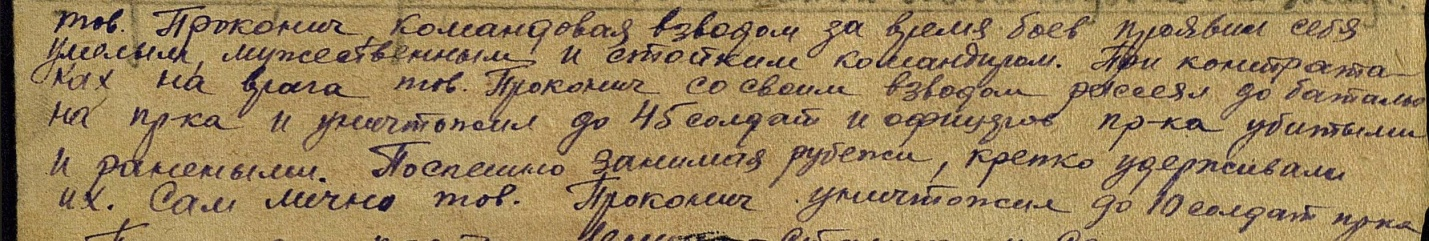 тов. Проконич, командовая взводом за время боев проявил себя
умелым, мужественным и стойким командиром. При контрата-
ках на врага тов. Проконич со своим взводом рассеял до баталио
на пр-ка и уничтожил до 45 солдат и офицеров пр-ка убитыми
и ранеными. Поспешно занимая рубежи, крепко удерживали
их. Сам лично тов. Проконич уничтожил до 10 солдат пр-ка